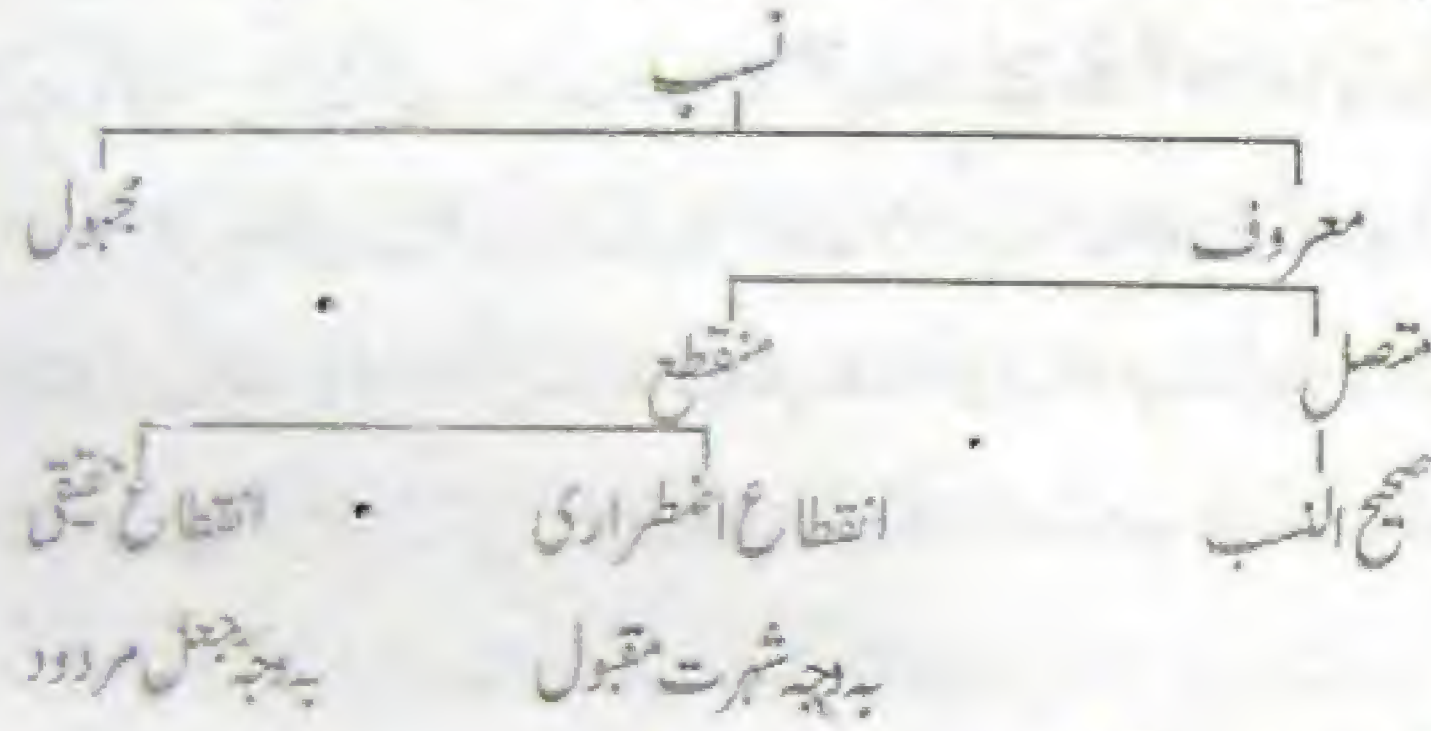 نسب
معروف مجہول
متصل منقطع
صحیح النسب انقطاع اضطراری انقطاع حقیقی
بہ وجہ شہرت مقبول بہ وجہ جعل مردود